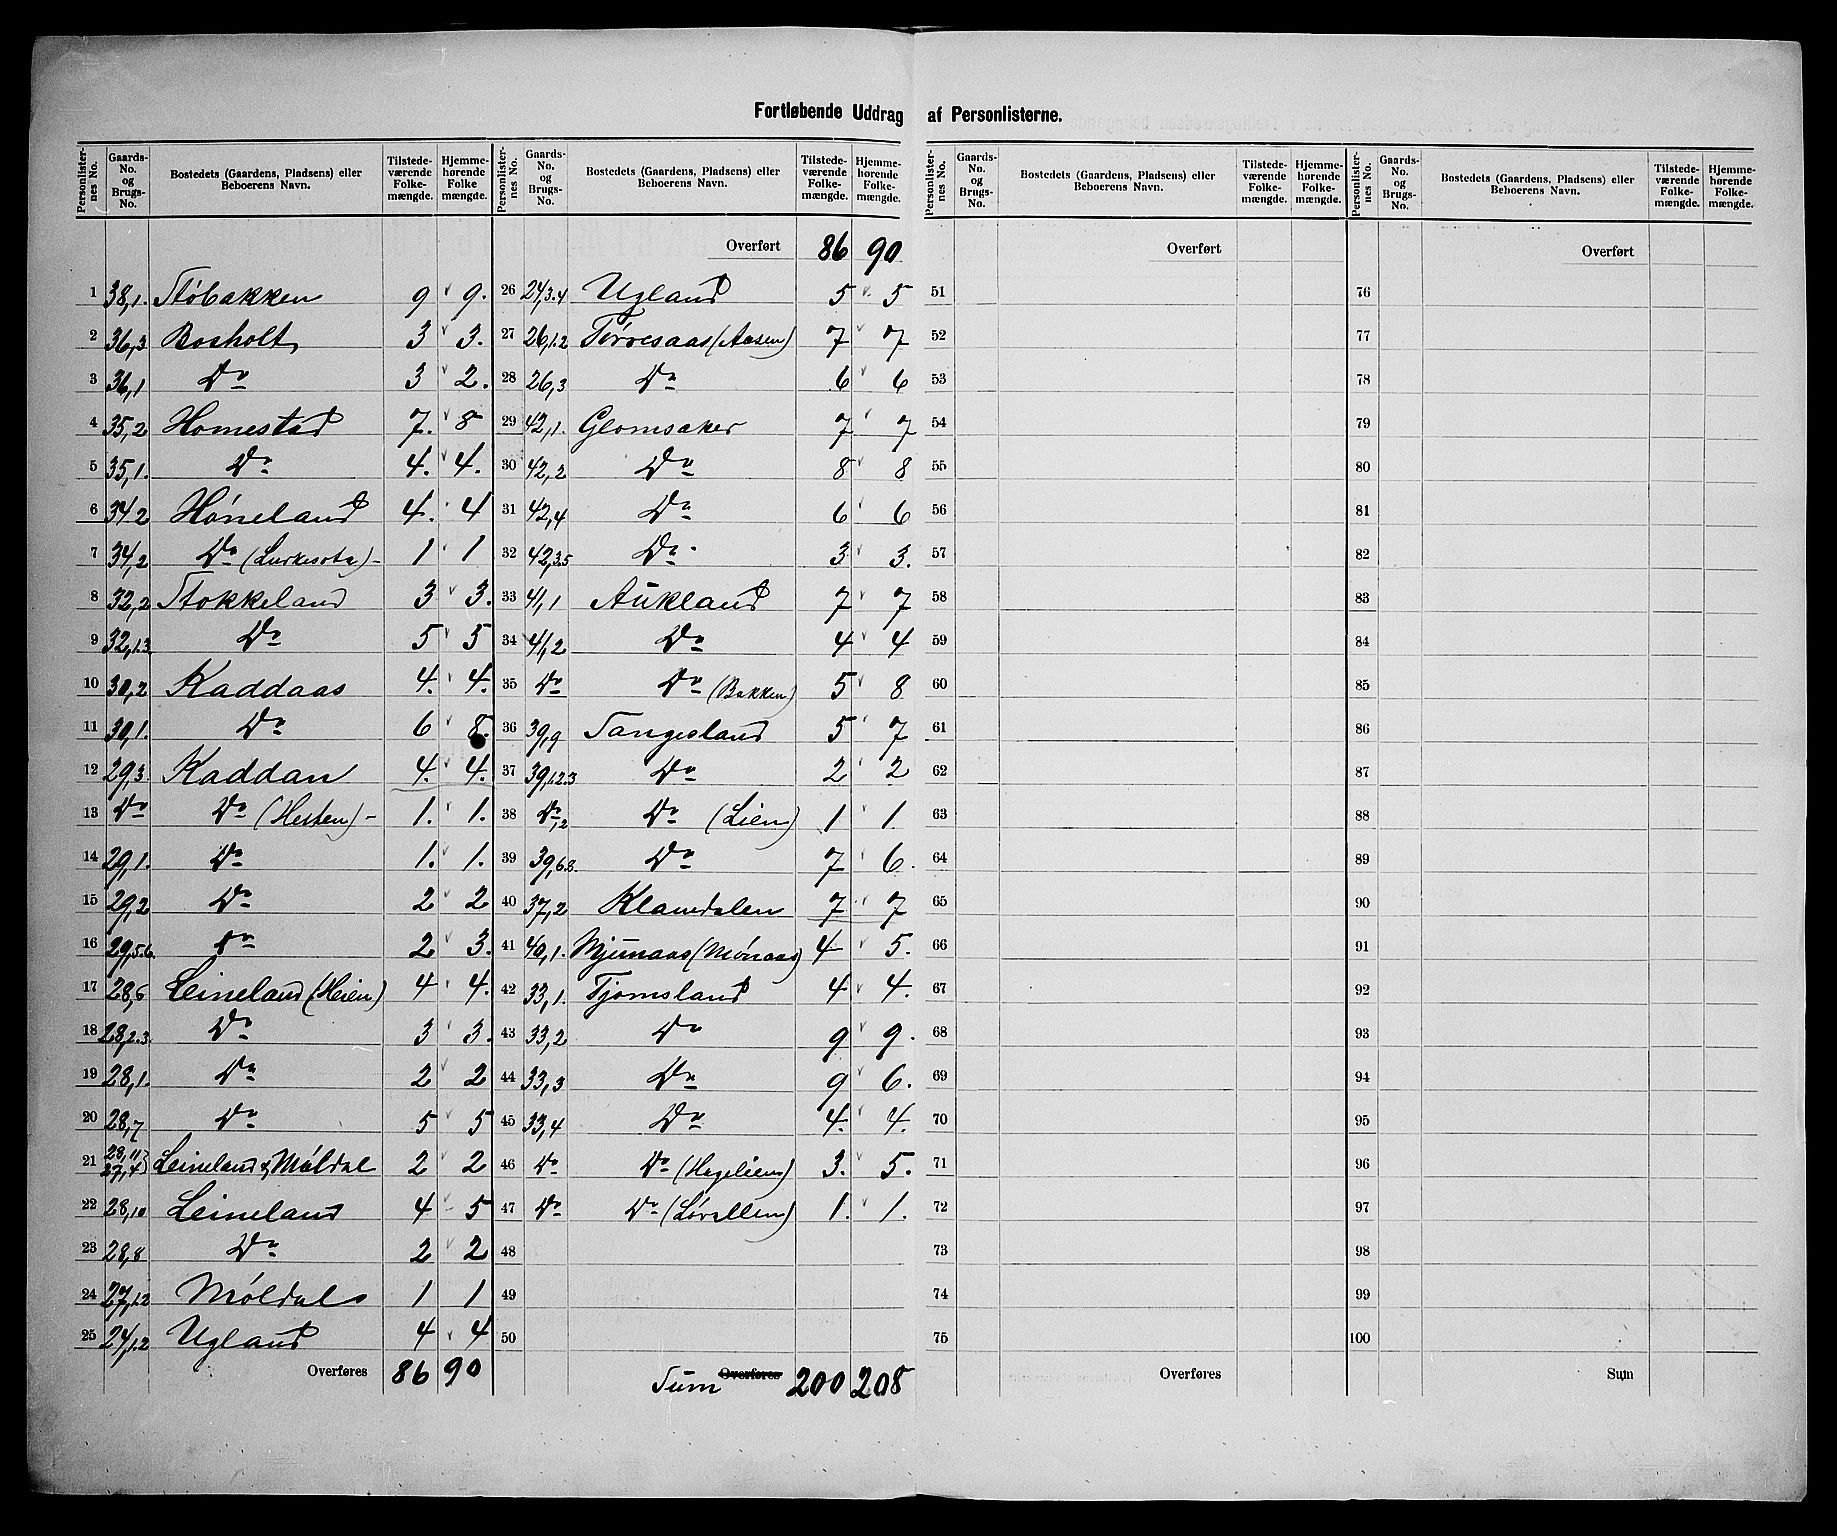 Fortløbende Uddrag af Personlisterne.
Personlister-nes No. Gaards-No. og Brugs-No. Bostedets (Gaardens, Pladsens) eller Beboerens Navn. Tilstede-værende Folke-mængde. Hjemme-hørende Folke mængde.
1 38,1. Støbakken 9 9.
2 36,3 Bosholt 3 3.
3 36,1 Do 3 2.
4 35,2 Homestad 7. 8
5 35,1. Do 4. 4.
6 34,2 Høneland 4. 4
7 34,2 Do 1 1
8 32,2 Stokkeland 3 3.
9 32,1.3 Do 5 5
10 30,2 Kaddaas 4. 4.
11 30,1. Do 6 8.
12 29,3. Kaddan 4. 4.
13 Do Do (Hesten) - 1. 1.
14 29,1. Do 1. 1.
15 29,2 Do 2 2
16 29,5.6. Do 2 3.
17 28,6 Leineland (Heien) 4 4.
18 28,2.3. Do 3 3.
19 28,1. Do 2 2
20 28,7 Do 5 5
21 28,11 27,4 Leineland & Møldal 2 2
22 28,10 Leineland 4 5
23 28,8 Do 2 2
24 27,1.2 Møldal 1 1
25 24,1.2 Ugland 4 4
Overføres 86 90
Personlister-nes No. Gaards-No. og Brugs-No. Bostedets (Gaardens, Pladsens) eller Beboerens Navn. Tilstede-værende Folke-mængde. Hjemme-hørende Folke-mængde.
Overført 86 90
26 24,3.4 Ugland 5 5
27 26,1.2 Torvesaas (Aasen) 7 7
28 26,3 Do 6 6
29 42,1. Glomsaker 7 7
30 42,2 Do 8 8
31 42,4 Do 6 6
32 42,3.5 Do 3 3.
33 41,1 Aukland 7 7
34 41,2 Do 4 4
35 Do Do (Bakken) 5 8
36 39,9 Tangesland 5 7
37 39,1.2.3 Do 2 2
38 Do,2 Do (Lien) 1 1.
39 39,6.8. Do 7 6.
40 37,2 Klandalen 7 7
41 40,1. Mjunaas (Mønaas) 4 5.
42 33,1. Tjomsland 4 4.
43 33,2 Do 9 9.
44 33,3 Do 9 6.
45 33,4 Do 4. 4.
46 Do Do (Hegelien) 3. 5.
47 Do Do (Løvallen) 1. 1.
48
49
50
Sum Overføres 200 208
Personlister-nes No. Gaards-No. og Brugs-No. Bostedets (Gaardens, Pladsens) eller Beboerens Navn. Tilstede-værende Folke-mængde. Hjemme-hørende Folke-mængde.
Overført
51
52
53
54
55
56
57
58
59
60
61
62
63
64
65
66
67
68
69
70
71
72
73
74
75
Overføres
Personlister-nes No. Gaards-No. og Brugs-No. Bostedets (Gaardens, Pladsens) eller Beboerens Navn. Tilstede-værende Folke-mængde. Hjemme-hørende Folke-mængde.
Overført
76
77
78
79
80
81
82
83
84
85
86
87
88
89
90
91
92
93
94
95
96
97
98
99
100
Sum